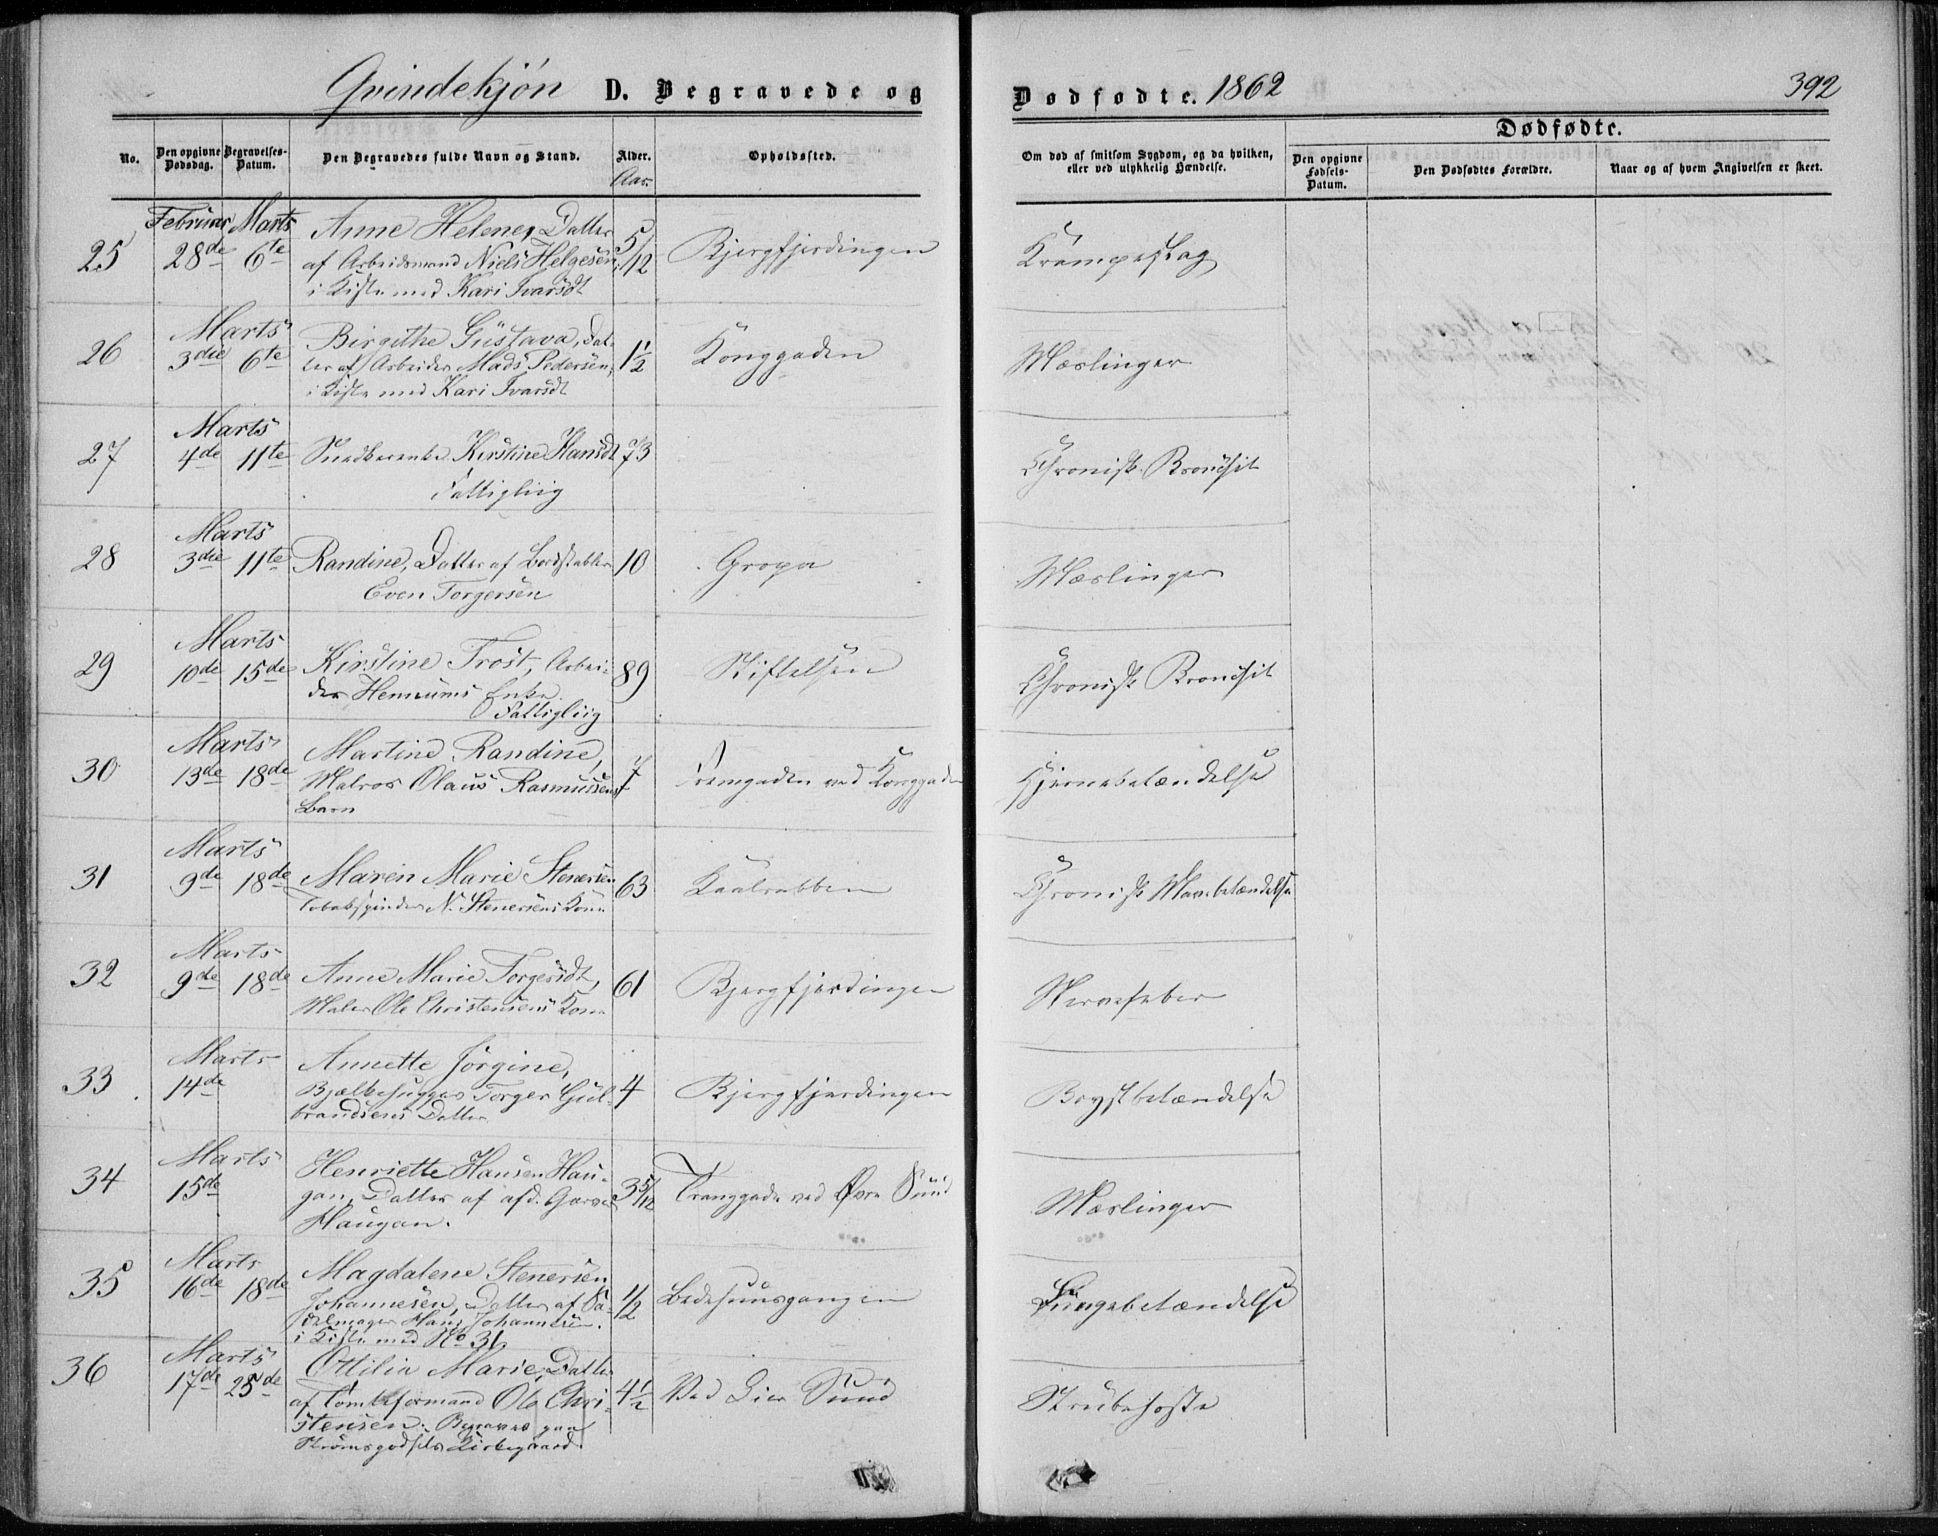 Qvindekjön D. Begravede og Dødfødte. 1862 392
Dødfødte.
No. Den opgivne Dødsdag. Begravelses-Datum. Den Begravedes fulde Navn og Stand. Alder. Opholdssted. Om død af smitsom Sygdom, og da hvilken, eller ved ulykkelig Hændelse. Den opgivne Fødsels-Datum. Den Dødfødtes Forældre. Naar og af hvem Angivelsen er skeet.
Aar.
Februar Marts Anne Helene, Datter
25 28de 6te af Arbeidsmand Niels Helgesen 5/12 Bjergfjerdingen Krampeslag
i Kiste med Kari Ivarsdt
Marts Birgithe Gustava, Dat-
26 3die 6te ter af Arbeider Mads Pedersen, 1½ Konggaden Mæslinger
i Kiste med Kari Ivarsdt
Marts
27 4de 11te Snedkerenke Kirstine Hansdt 73 Chronisk Bronchit
Fattigliig
Marts
28 3die 11te Randine, Datter af Bordstabler 10 Gropa Mæslinger
Even Torgersen
Marts
29 10de 15de Kirstine Trost, Arbei- 89 Stiftelsen Chronisk Bronchit
der Hemsums Enke.
Fattigliig
Marts Martine Randine,
30 13de 18de Matros Olaus Rasmussens 7 Tverrgaden ved Konggaden Hjernebetændelse
Barn
Marts
31 9de 18de Maren Marie Stenersen 63 Kaalrabben Chronisk Mavebetændelse
Tobakspinder N. Stenersens Kone
Marts
32 9de 18de Anne Marie Torgersdt, 61 Bjergfjerdingen Nervefeber
Maler Ole Christensens Kone
Marts Annette Jörgine,
33 14de Bjælkehugger Torger Gul- 4 Bjergfjerdingen Brystbetændelse
brandsens Datter
Marts Henriette Hansen Hau-
34 15de gan, Datter af afd. Garver 3 5/12 Tranggade ved Øvre Sund Mæslinger
Haugan.
Marts Magdalene Stenersen
35 16de 18de Johannesen, Datter af Sa- ½ Bedehuusgangen Lungebetændelse
delmager Hans Johannesen.
i Kiste med No 31.
Marts Ottilia Marie, Datter
36 17de 25de af Tomteformand Ole Chri- 4½ Ved Lier Sund Strubehoste
stensen. Begraves paa
Strømsgodsets Kirkegaard.